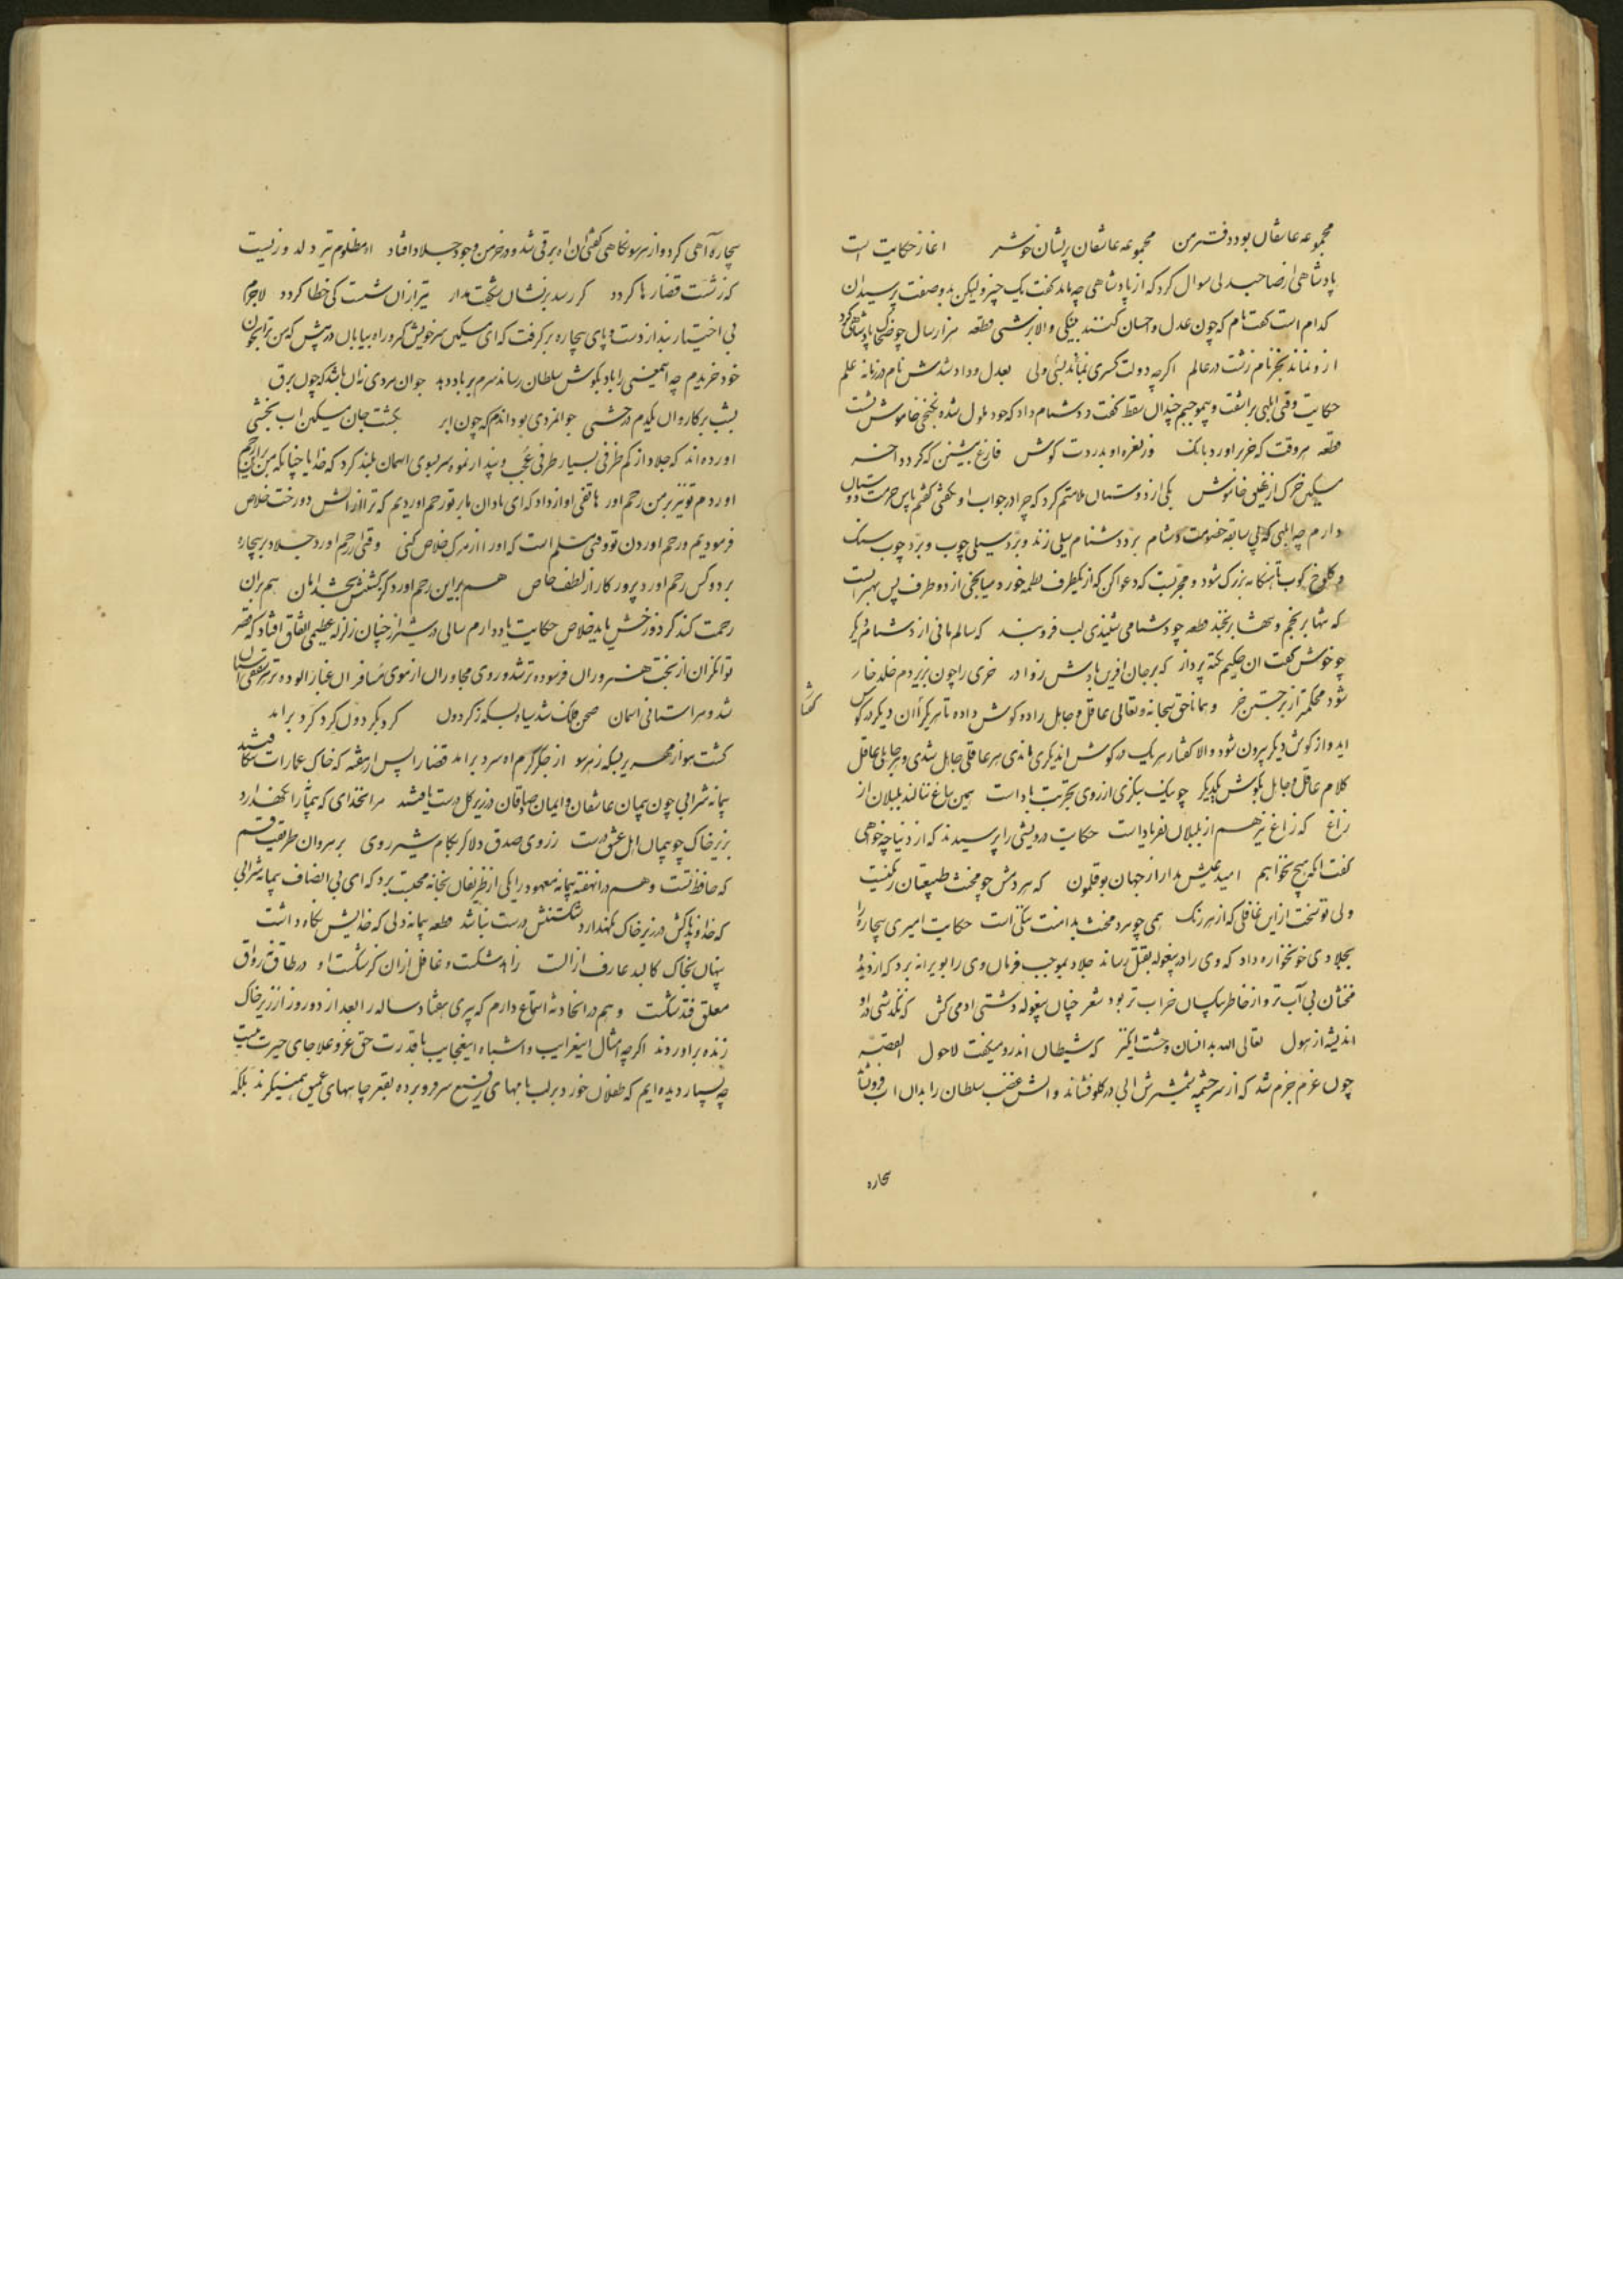 مجموعه عاشقان بود دفتر من مجموعه عاشقان پریشان خوشتر اغاز حکایت است
پادشاهی از صاحبدلی سوال کرد که از پادشاهی چه ماند گفت یک چیز ولیکن بدو صفت پرسید ان
کدام است گفت نام که چون عدل و احسان کنند بنیکی والا بزشتی قطعه هزار سال چو ضحاک پادشاهی کرد
ازو نماند بجز نام زشت در عالم اگرچه دولت کسری نماند بسی ولی بعدل و داد شدش نام در زمانه علم
حکایت وقتی ابلهی براشفت و بیموجبم چندان سقط گفت و دشنام داد که خود ملول شده بکنجی خاموش نشست
قطعه هر وقت که خر براورد بانک وز نعره او بدردت کوش فارغ بنشین که گردد اخر
مسکین خرک از نهیق خاموش یکی از دوستان ملامتم کرد که چرا در جواب او نکفتی گفتم پاس حرمت دوستان
دارم چه ابلهی که بی سابقه خصومت دشنام برد دشنام سیلی زند و برد سیلی چوب و برد چوب سنک
و کلوخ کوب تا هنکامه بزرک شود و مجربست که دعوا کن که از یکطرف لطمه خورد میانجی از دو طرف پس بهتر انست
که تنها برنجم و تنها برنجند قطعه چو دشنامی شنیدی لب فروبند که سالم مانی از دشنام دیکر
چو خوش گفت ان حکیم نکته پرداز که بر جان افرین بادش ز داور خری را چون بزیر دم خلد خار
شود محکمتر از برجستن خر و همانا حق سبحانه و تعالی عاقل و جاهل را دو کوش داده تا هر یک را از ان دیکر در کوش
اید و از کوش دیکر بیرون شود والا گفتار هر یک در کوش اندیکری ماندی هر عاقلی جاهل شدی و هر جاهلی عاقل
کلام عاقل و جاهل بکوش یکدیکر چو نیک بنکری از روی تجربت باد است همین بباغ ننالند بلبلان از
زاغ که زاغ نیز هم از بلبلان بفریاد است حکایت درویشی را پرسیدند که از دنیا چه خواهی
گفت انکه هیچ نخواهم امید عیش مدار از جهان بوقلمون که هر دمش چو مخنث طبیعتان رنکیست
ولی تو سخت ازین غافلی که از هر رنک همی چو مرد مخنث بدامنت ننکی است حکایت امیری بیچاره را
بجلادی خونخواره داد که وی را در بیغوله بقتل رساند جلاد بموجب فرمان وی را بویرانه برد که از دیده
مخنثان بی آب تر و از خاطر بیکسان خراب تر بود شعر چنان بیغوله دشتی ادمی کش که نکذشتی در او
اندیشه از هول تعالی الله بدانسان وحشت انکیز که شیطان اندرو میکفت لاحول القصه
چون عزم جزم شد که از سرچشمه شمشیرش ابی در کلو فشاند و اتش غضب سلطان را بدان اب فرونشاند
بیچاره
بیچاره آهی کرد و از هر سو نکاهی گفتی ان اه برقی شد و در خرمن وجود جلاد افتاد اه مظلوم تیر دلدوزیست
که ز شست قضا رها کردد کر رسد بر نشان شکفت مدار تیر ازان شست کی خطا کردد لاجرم
بی اختیار بند از دست و پای بیچاره برکرفت که ای مسکین سر خویش کیر و راه بیابان در پیش که من ترا بخون
خود خریدم چه اینمعنی را باد بکوش سلطان رساند سرم بر باد دهد جوان مردی نه ان باشد که چون برق
بشب بر کاروان یکدم درخشی جوانمردی بود اندم که چون ابر بکشت جان مسکین اب بخشی
اورده اند که جلاد از کم ظرفی بسیار طرفی عجب و پندار نمود سر بسوی اسمان بلند کرد که خدایا چنانکه من بر این رحم
اوردم تو نیز بر من رحم اور هاتفی اواز داد که ای نادان ما بر تو رحم اوردیم که ترا از اتش دوزخت خلاص
فرمودیم و رحم اوردن تو وقتی مسلم است که او را از مرک خلاص کنی وقتی ار رحم اورد جلاد بر بیچاره
بر دو کس رحم اورد پروردکار از لطف خاص هم بر این رحم اورد کز کشتنش بخشد امان هم بر ان
رحمت کند کز دوزخش یابد خلاص حکایت یاد دارم سالی در شیراز چنان زلزله عظیمی اتفاق افتاد که قصر
توانکران از بخت هنروران فرسوده تر شد و روی مجاوران از موی مسافران غبار الوده تر هر سقفی استان
شد و هر استانی اسمان صحن فلک شد سیاه بسکه ز کردون کرد بکردون کرد کرد برامد
کشت هوا زمهریر بسکه ز هر سو از جکر کرم اه سرد برامد قضا را پس از هفته که خاک عمارات میشکافتند
پیمانه شرابی چون پیمان عاشقان و ایمان صادقان در زیر کل درست یافتند مر انخدای که پیمانه را نکهدارد
بزیر خاک چو پیمان اهل عشق درست ز روی صدق دلا کر بکام شیر روی برهروان طریقت قسم
که حافظ تست و هم در انهفته پیمانه معهود را یکی از ظریفان بخانه محتسب برد که ای بی انصاف پیمانه شرابی
که خداوند پاکش در زیر خاک نکهدارد شکستنش درست نباشد قطعه پیمانه دلی که خدایش نکاه داشت
پنهان بخاک کالبد عارف از الست زاهد شکست و غافل ازان کز شکست او در طاق نه رواق
معلق فتد شکست و هم در انحادثه استماع دارم که پیری هفتاد ساله را بعد از دو روز از زیر خاک
زنده براوردند اکرچه امثال اینغرایب و اشباه اینعجایب با قدرت حق عز و علا جای حیرت نیست
چه بسیار دیده ایم که طفلان خورد بر لب بامهای رفیع سر فرو برده بقعر چاههای عمیق همینکرند بلکه